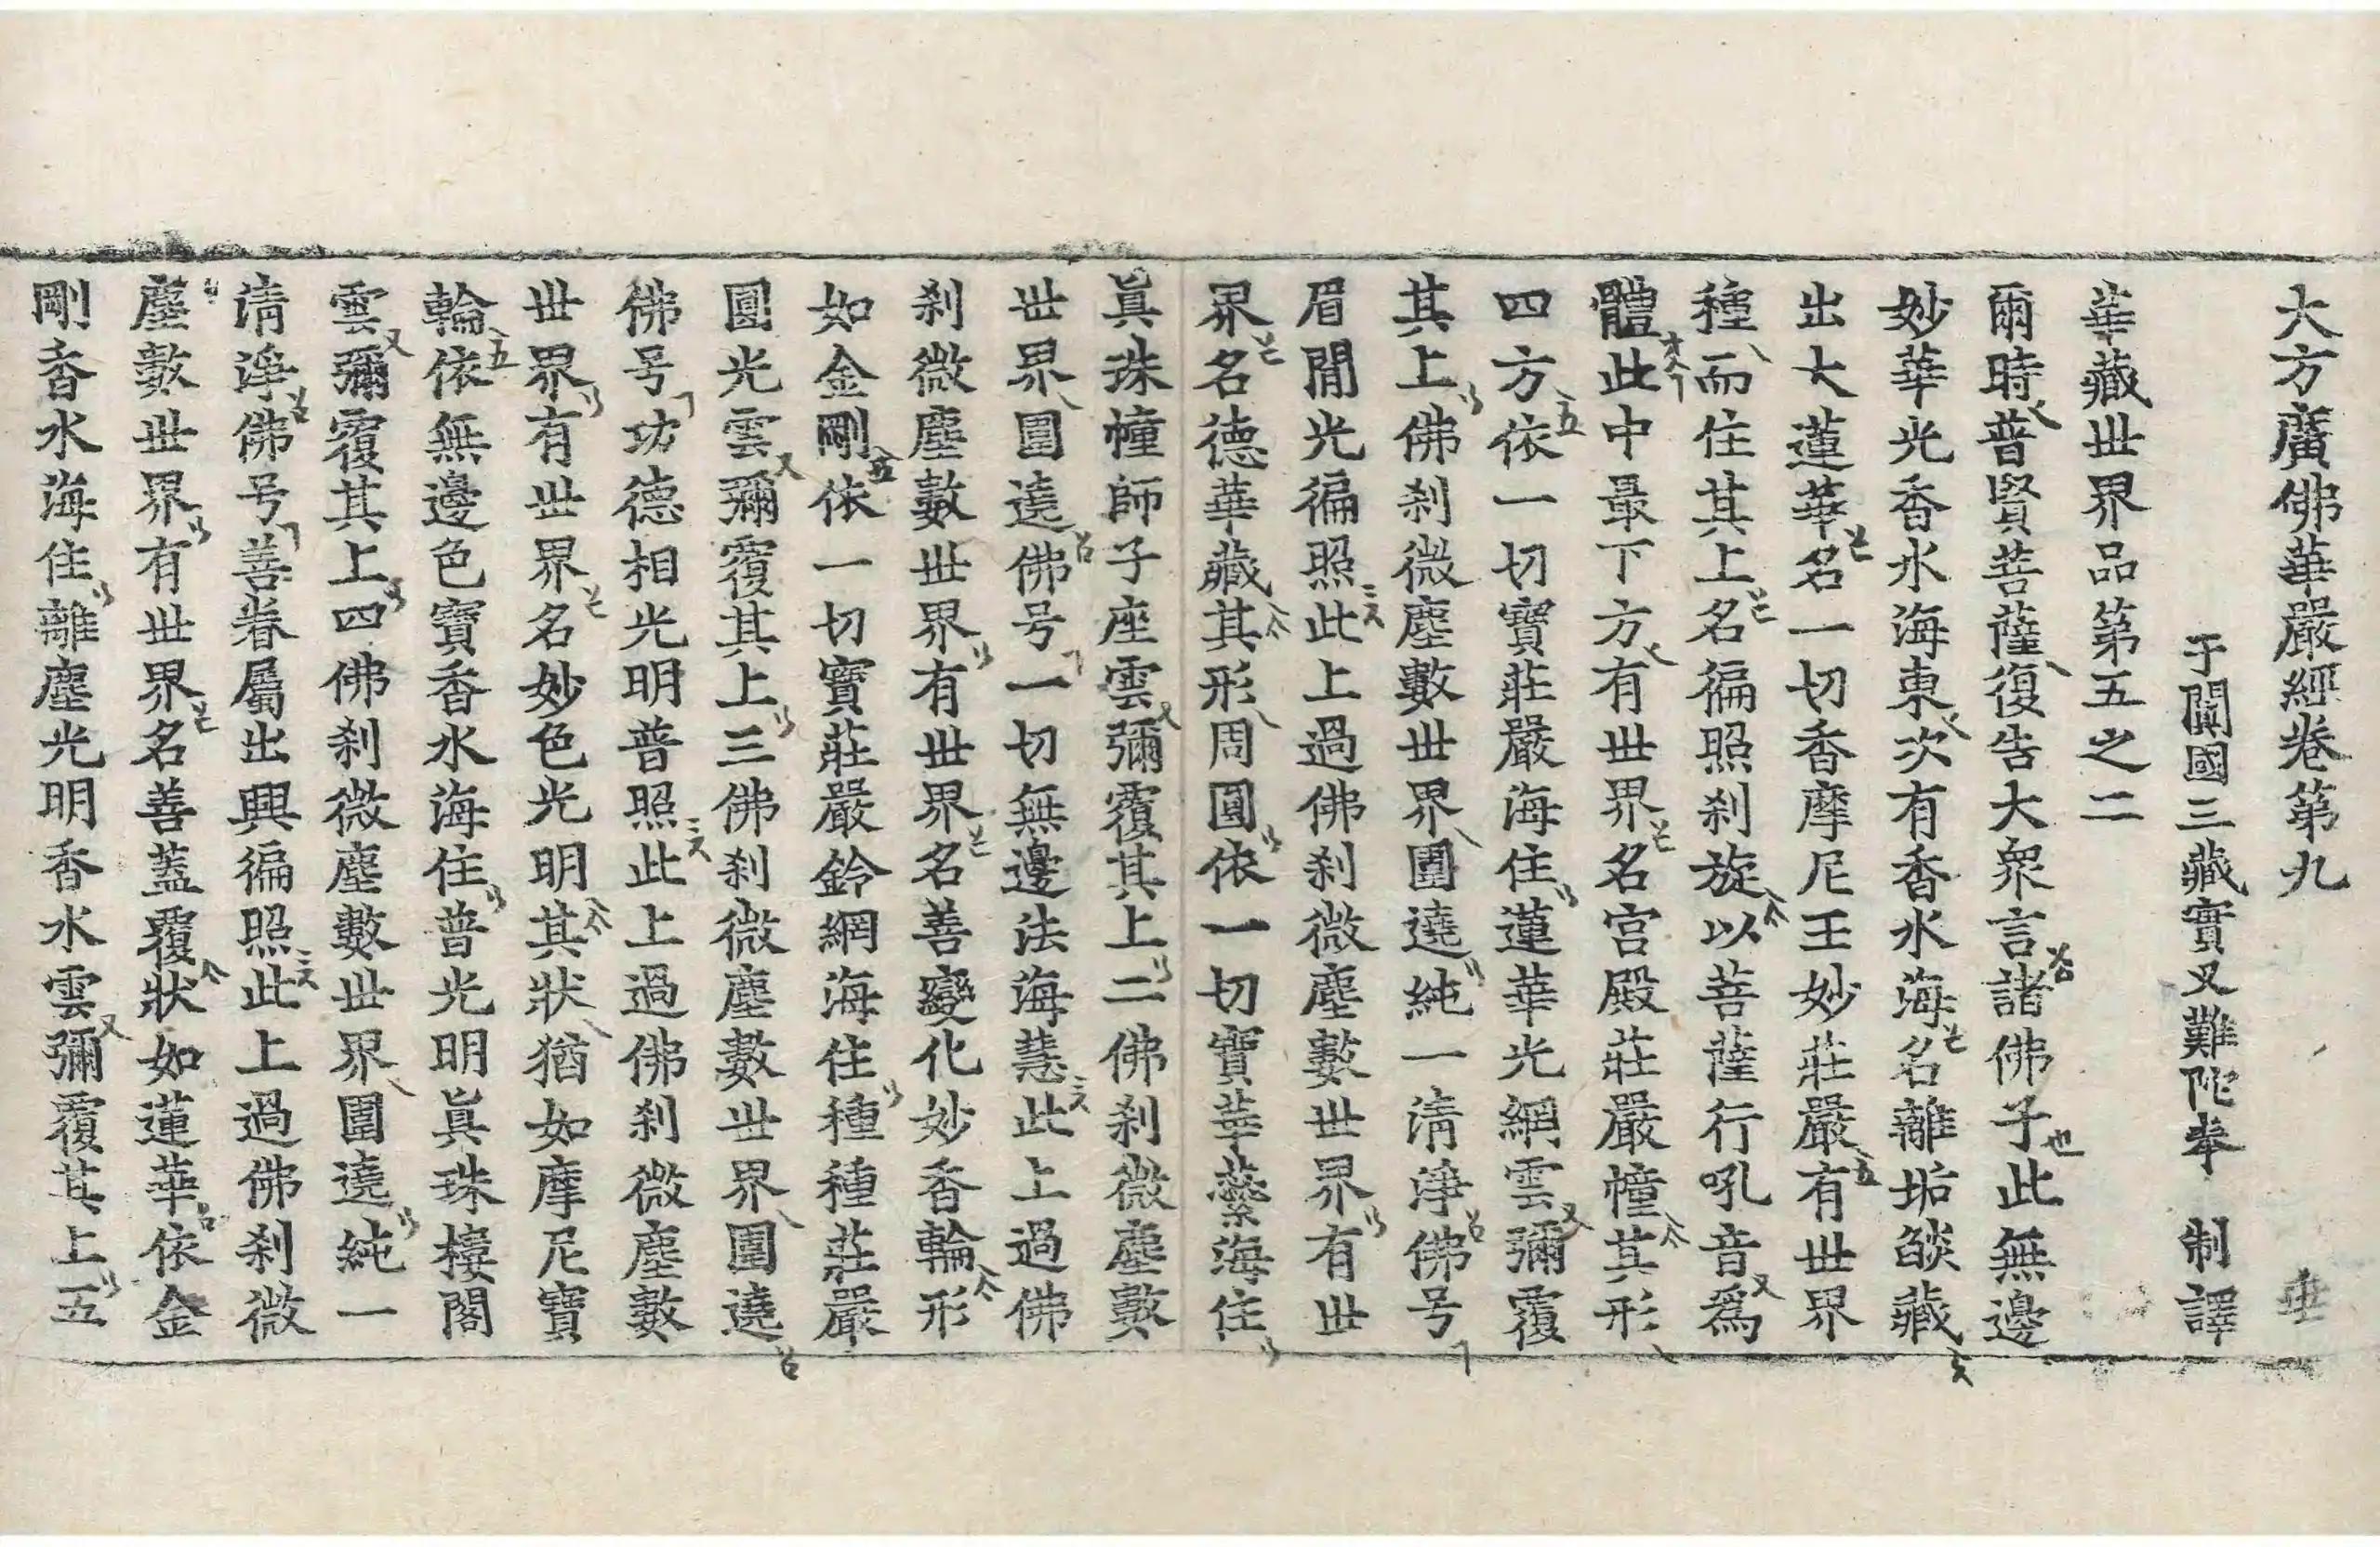 大方廣佛華嚴經卷第九 垂
于闐國三藏實叉難陀奉 制譯
華藏世界品第五之二
爾時普賢菩薩復告大衆言諸佛子此無邊
妙華光香水海東次有香水海名離垢焰藏
出大蓮華名一切香摩尼王妙莊嚴有世界
種而住其上名徧照刹旋以菩薩行吼音爲
體此中最下方有世界名宮殿莊嚴幢其形
四方依一切寶莊嚴海住蓮華光網雲彌覆
其上佛刹微塵數世界圍遶純一清淨佛号
眉間光徧照此上過佛刹微塵數世界有世
界名德華藏其形周圓依一切寶華蘂海住
眞珠幢師子座雲彌覆其上二佛刹微塵數
世界圍遶佛号一切無邊法海慧此上過佛
刹微塵數世界有世界名善變化妙香輪形
如金剛依一切寶莊嚴鈴網海住種種莊嚴
圓光雲彌覆其上三佛刹微塵數世界圍遶
佛号功德相光明普照此上過佛刹微塵數
世界有世界名妙色光明其狀猶如摩尼寶
輪依無邊色寶香水海住普光明眞珠樓閣
雲彌覆其上四佛刹微塵數世界圍遶純一
清淨佛号善眷屬出興徧照此上過佛刹微
塵數世界有世界名善蓋覆狀如蓮華依金
剛香水海住離塵光明香水雲彌覆其上五